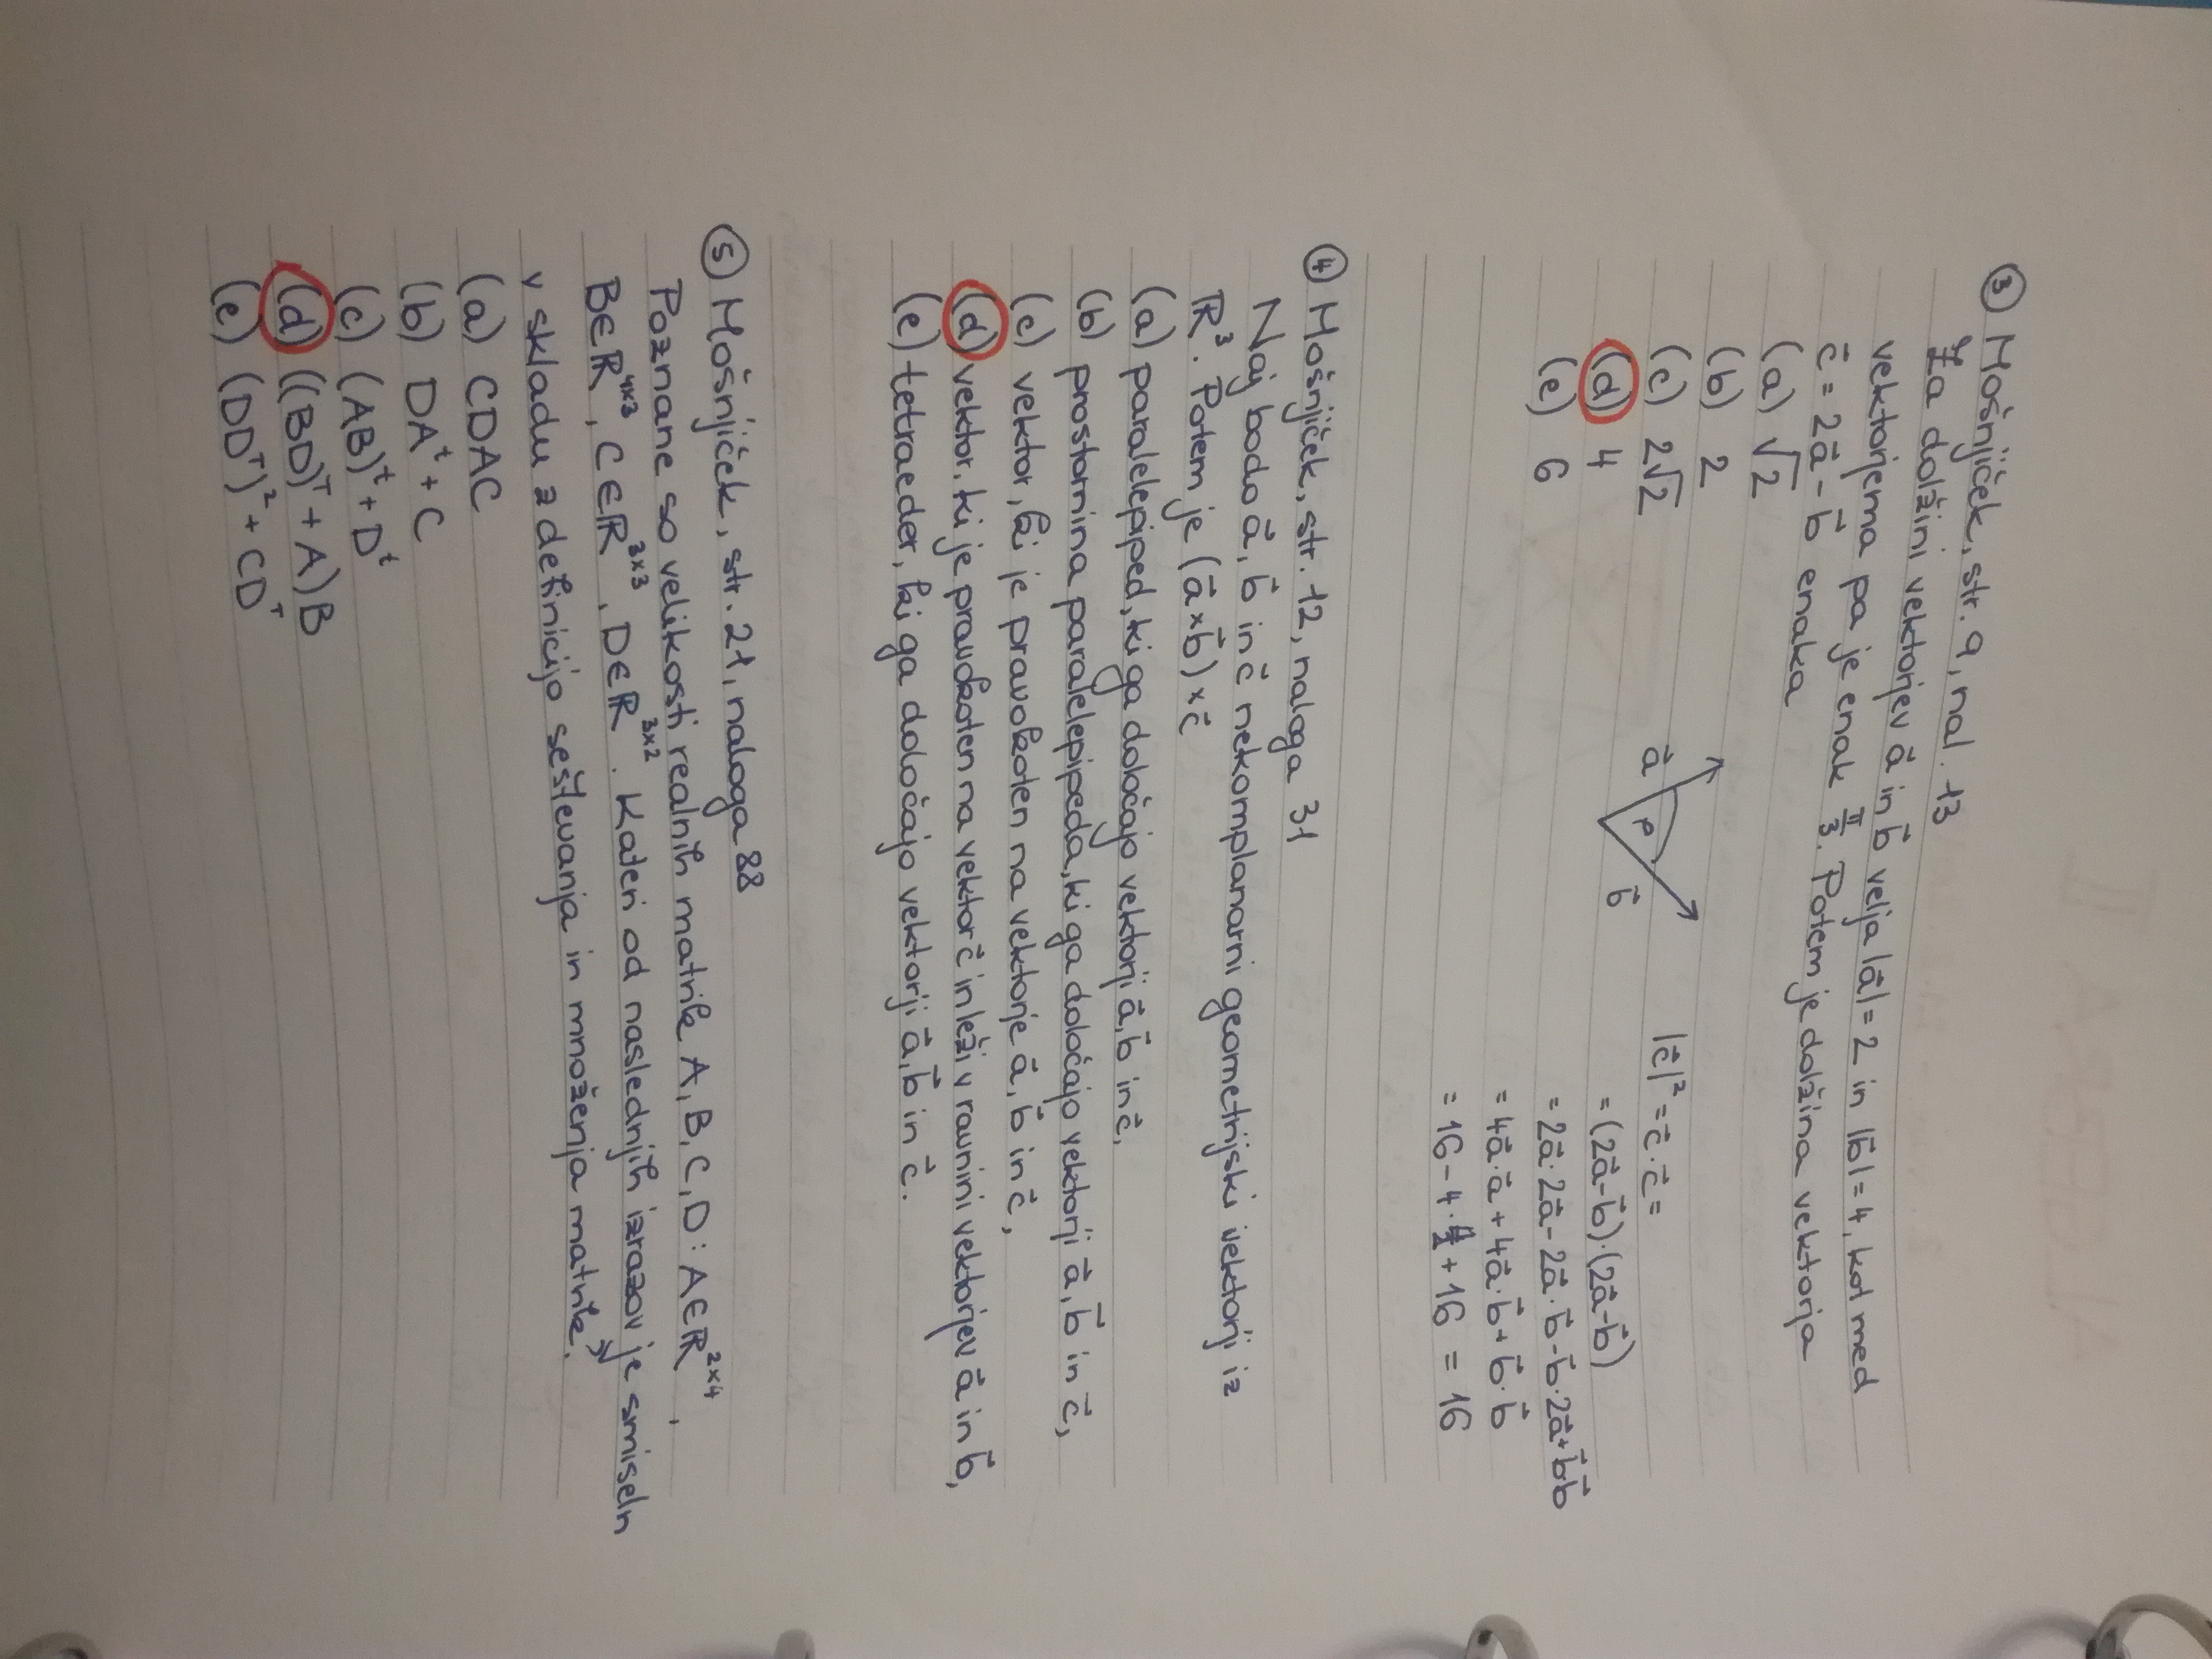 ③ Mošnjiček, str. 9, nal. 13
Za dolžini vektorjev a⃗ in b⃗ velja |a⃗| = 2 in |b⃗| = 4, kot med
vektorjema pa je enak π/3. Potem je dolžina vektorja
c⃗ = 2a⃗ - b⃗ enaka
(a) √2
(b) 2
(c) 2√2
(d) 4
(e) 6
a⃗ φ b⃗
|c⃗|² = c⃗·c⃗ =
= (2a⃗-b⃗)·(2a⃗-b⃗)
= 2a⃗·2a⃗ - 2a⃗·b⃗ - b⃗·2a⃗ + b⃗·b⃗
= 4a⃗·a⃗ + 4a⃗·b⃗ + b⃗·b⃗
= 16 - 4· + 16 = 16
④ Mošnjiček, str. 12, naloga 31
Naj bodo a⃗, b⃗ in c⃗ nekomplanarni geometrijski vektorji iz
ℝ³. Potem je (a⃗×b⃗)×c⃗
(a) paralelepiped, ki ga določajo vektorji a⃗, b⃗ in c⃗,
(b) prostornina paralelepipeda, ki ga določajo vektorji a⃗, b⃗ in c⃗,
(c) vektor, ki je pravokoten na vektorje a⃗, b⃗ in c⃗,
(d) vektor, ki je pravokoten na vektor c⃗ in leži v ravnini vektorjev a⃗ in b⃗,
(e) tetraeder, ki ga določajo vektorji a⃗, b⃗ in c⃗.
⑤ Mošnjiček, str. 21, naloga 88
Poznane so velikosti realnih matrik A, B, C, D: A∈ℝ²ˣ⁴,
B∈ℝ⁴ˣ³, C∈ℝ³ˣ³, D∈ℝ³ˣ². Kateri od naslednjih izrazov je smiseln
v skladu z definicijo seštevanja in množenja matrik?
(a) CDAC
(b) DAᵗ + C
(c) (AB)ᵗ + Dᵗ
(d) ((BD)ᵀ + A)B
(e) (DDᵀ)² + CDᵀ